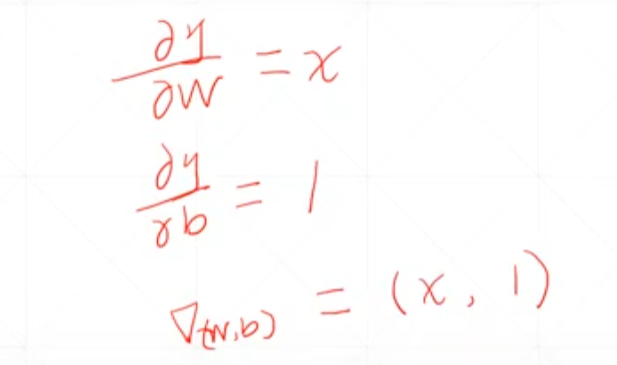 ∂y/∂w = x
∂y/∂b = 1
∇(w,b) = (x, 1)